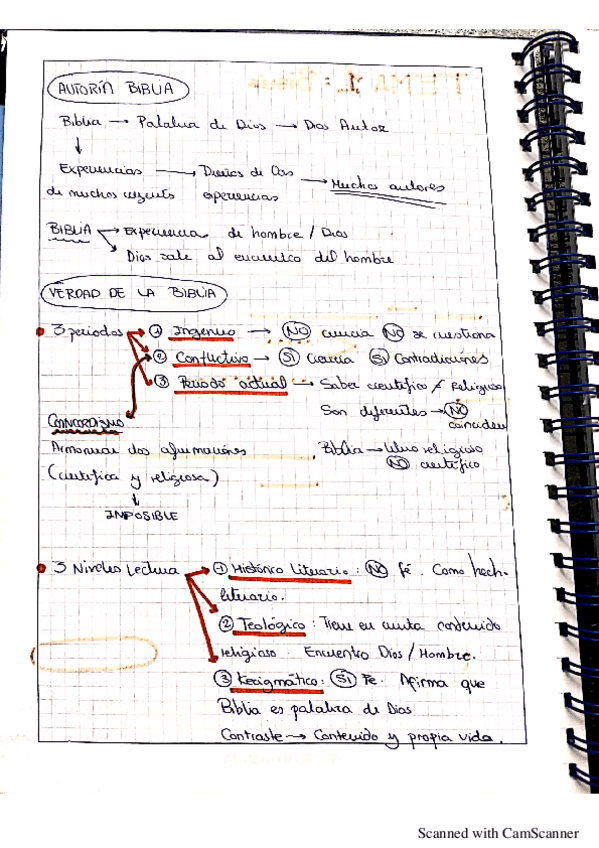 AUTORÍA BIBLIA
Biblia → Palabra de Dios → Dos Autor
↓
Experiencias → Diarios de Dos → Muchos autores
de muchos experiencias
BIBLIA → Experiencia de hombre / Dios
→ Dios sale al encuentro del hombre
VERDAD DE LA BIBLIA
3 periodos → ① Ingenuo → NO ciencia NO se cuestiona
② Conflictivo → SÍ Ciencia SÍ Contradicciones
③ Periodo actual → Saber científico ≠ Religioso
Son diferentes → NO
coinciden
CONCORDISMO
Armonizar dos afirmaciones
(científica y religiosa)
↓
IMPOSIBLE
Biblia → Libro religioso
NO científico
3 Niveles Lectura → ① Histórico literario: NO fé. Como hech.
literario.
② Teológico: Tiene en cuenta contenido
religioso. Encuentro Dios / Hombre.
③ Kerigmático: SÍ Fe. Afirma que
Biblia es palabra de Dios
Contraste → Contenido y propia vida.
Scanned with CamScanner